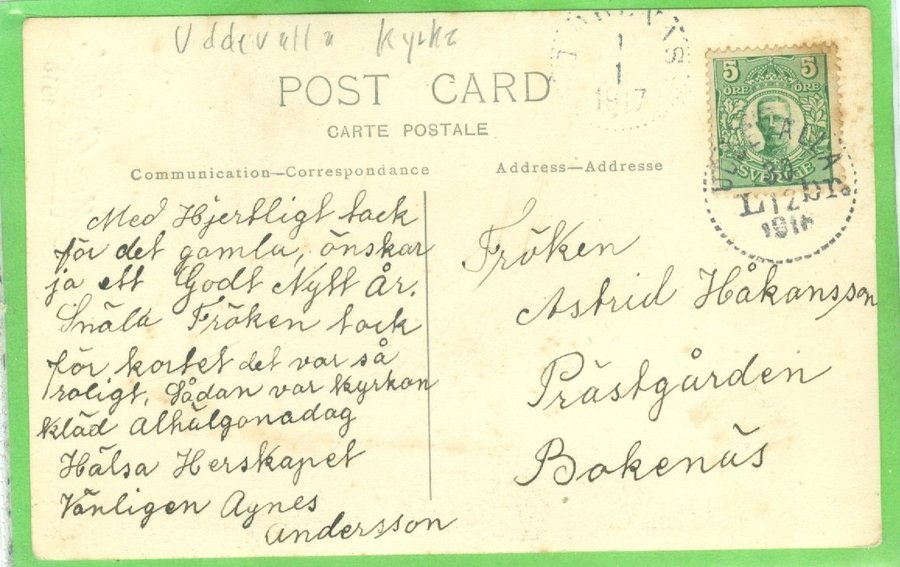 Uddevalla Kyrka
1
1
1917
POST CARD
CARTE POSTALE
Communication—Correspondance
Address—Addresse
5 5
ÖRE ÖRE
SVERIGE
UDDEVALLA
30
12
1916
L br.
Med Hjertligt tack
för det gamla, önskar
ja ett Godt Nytt År.
Snäla Fröken tack
för kortet det var så
roligt, Sådan var kyrkan
kläd Alhälgonadag
Hälsa Herskapet
Vänligen Agnes
Andersson
Fröken
Astrid Håkansson
Prästgården
Bokenäs